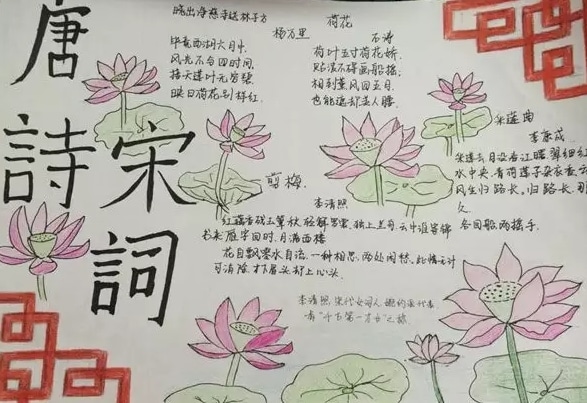 唐
詩
宋
詞
晓出净慈寺送林子方
杨万里
毕竟西湖六月中,
风光不与四时同,
接天莲叶无穷碧
映日荷花别样红.
荷花
石涛
荷叶五寸荷花娇,
贴波不碍画船摇;
相到薰风四五月,
也能遮却美人腰.
采莲曲
李康成
采莲去,月没春江曙.翠钿红
水中央,青荷莲子杂衣香,云
风生归路长。归路长,那
久.
各回船,两摇手.
剪梅.
李清照
红藕香残玉簟秋,轻解罗裳,独上兰舟.云中谁寄锦
书来,雁字回时,月满西楼
花自飘零水自流.一种相思,两处闲愁.此情无计
可消除,才下眉头,却上心头.
李清照,宋代女词人,婉约派代表,
有"千古第一才女"之称.